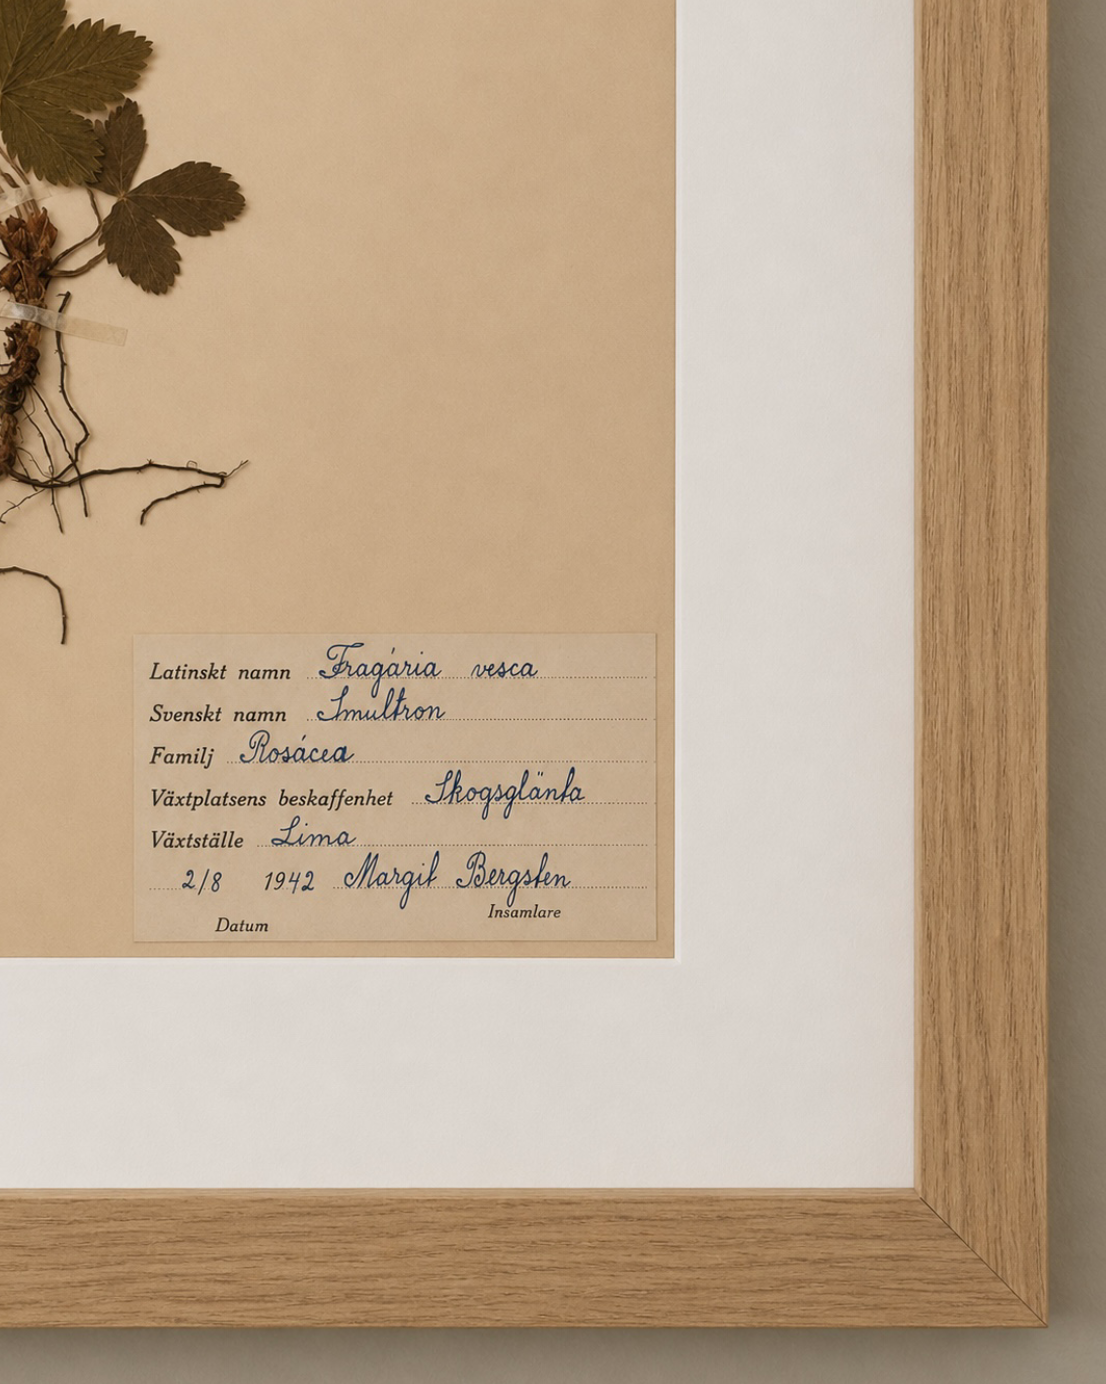 Latinskt namn Fragária vesca
Svenskt namn Smultron
Familj Rosácea
Växtplatsens beskaffenhet Skogsglänta
Växtställe Lima
2/8 1942 Margit Bergsten
Datum Insamlare